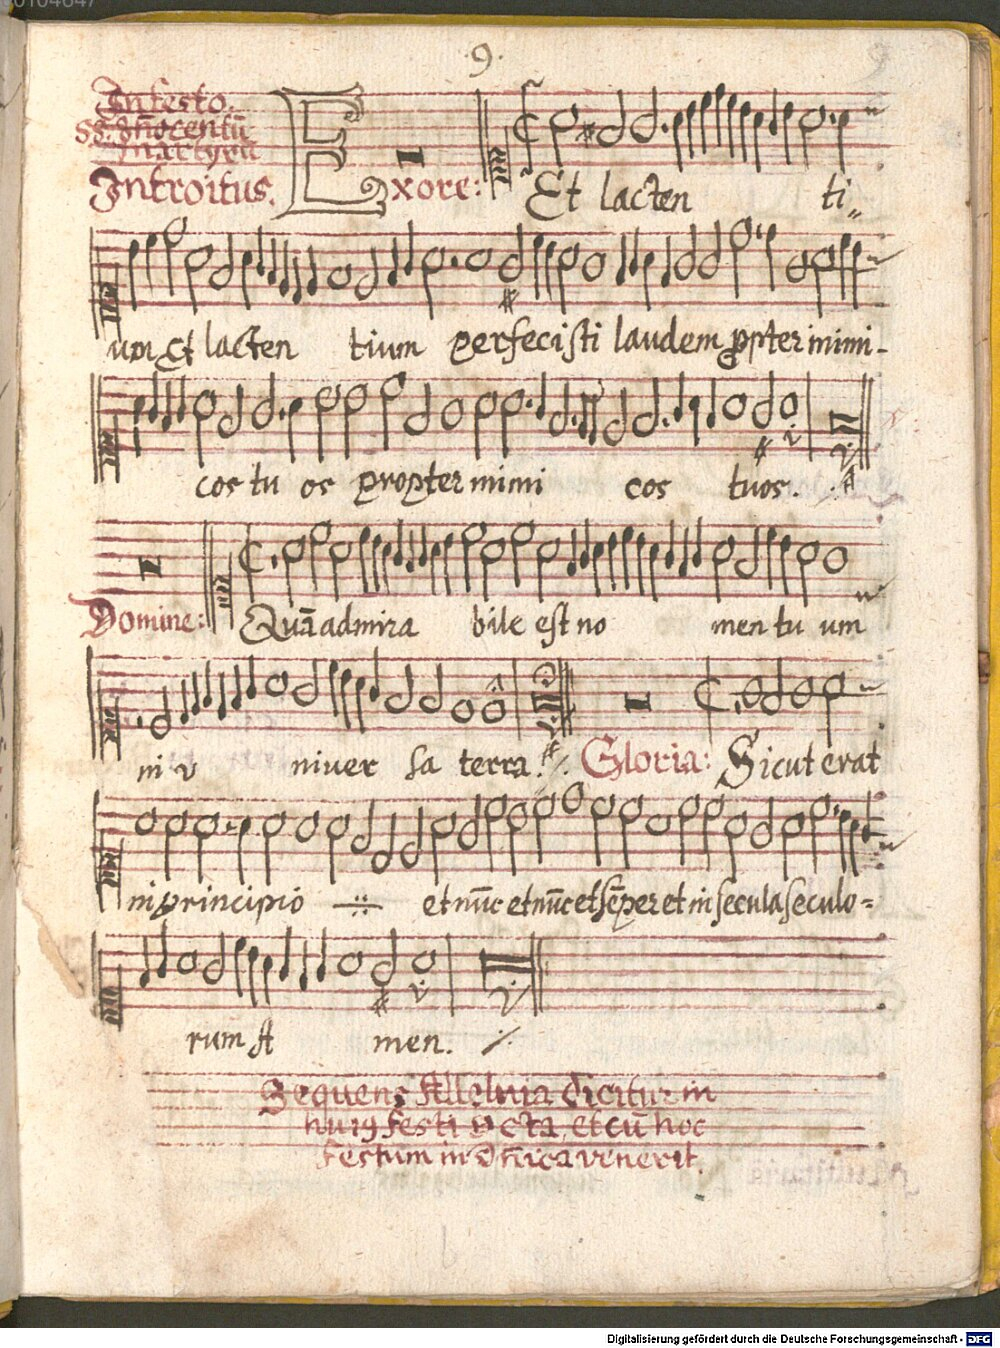 00104647
9.
In festo.
SS. Iñocentū
martyrū
Introitus.
Exore: Et lacten ti
um Et lacten tium perfecisti laudem ꝓpter inimi-
cos tu os propter inimi cos tuos. A
Domine: Quā admira bile est no men tu um
in v niver sa terra. Gloria: Sicut erat
in principio et nūc et nūc et sēper et in secula seculo=
rum A men.
Sequens Alleluia dicitur in
huiꝰ festi octa, et cū hoc
festum in dñica venerit.
Digitalisierung gefördert durch die Deutsche Forschungsgemeinschaft - DFG